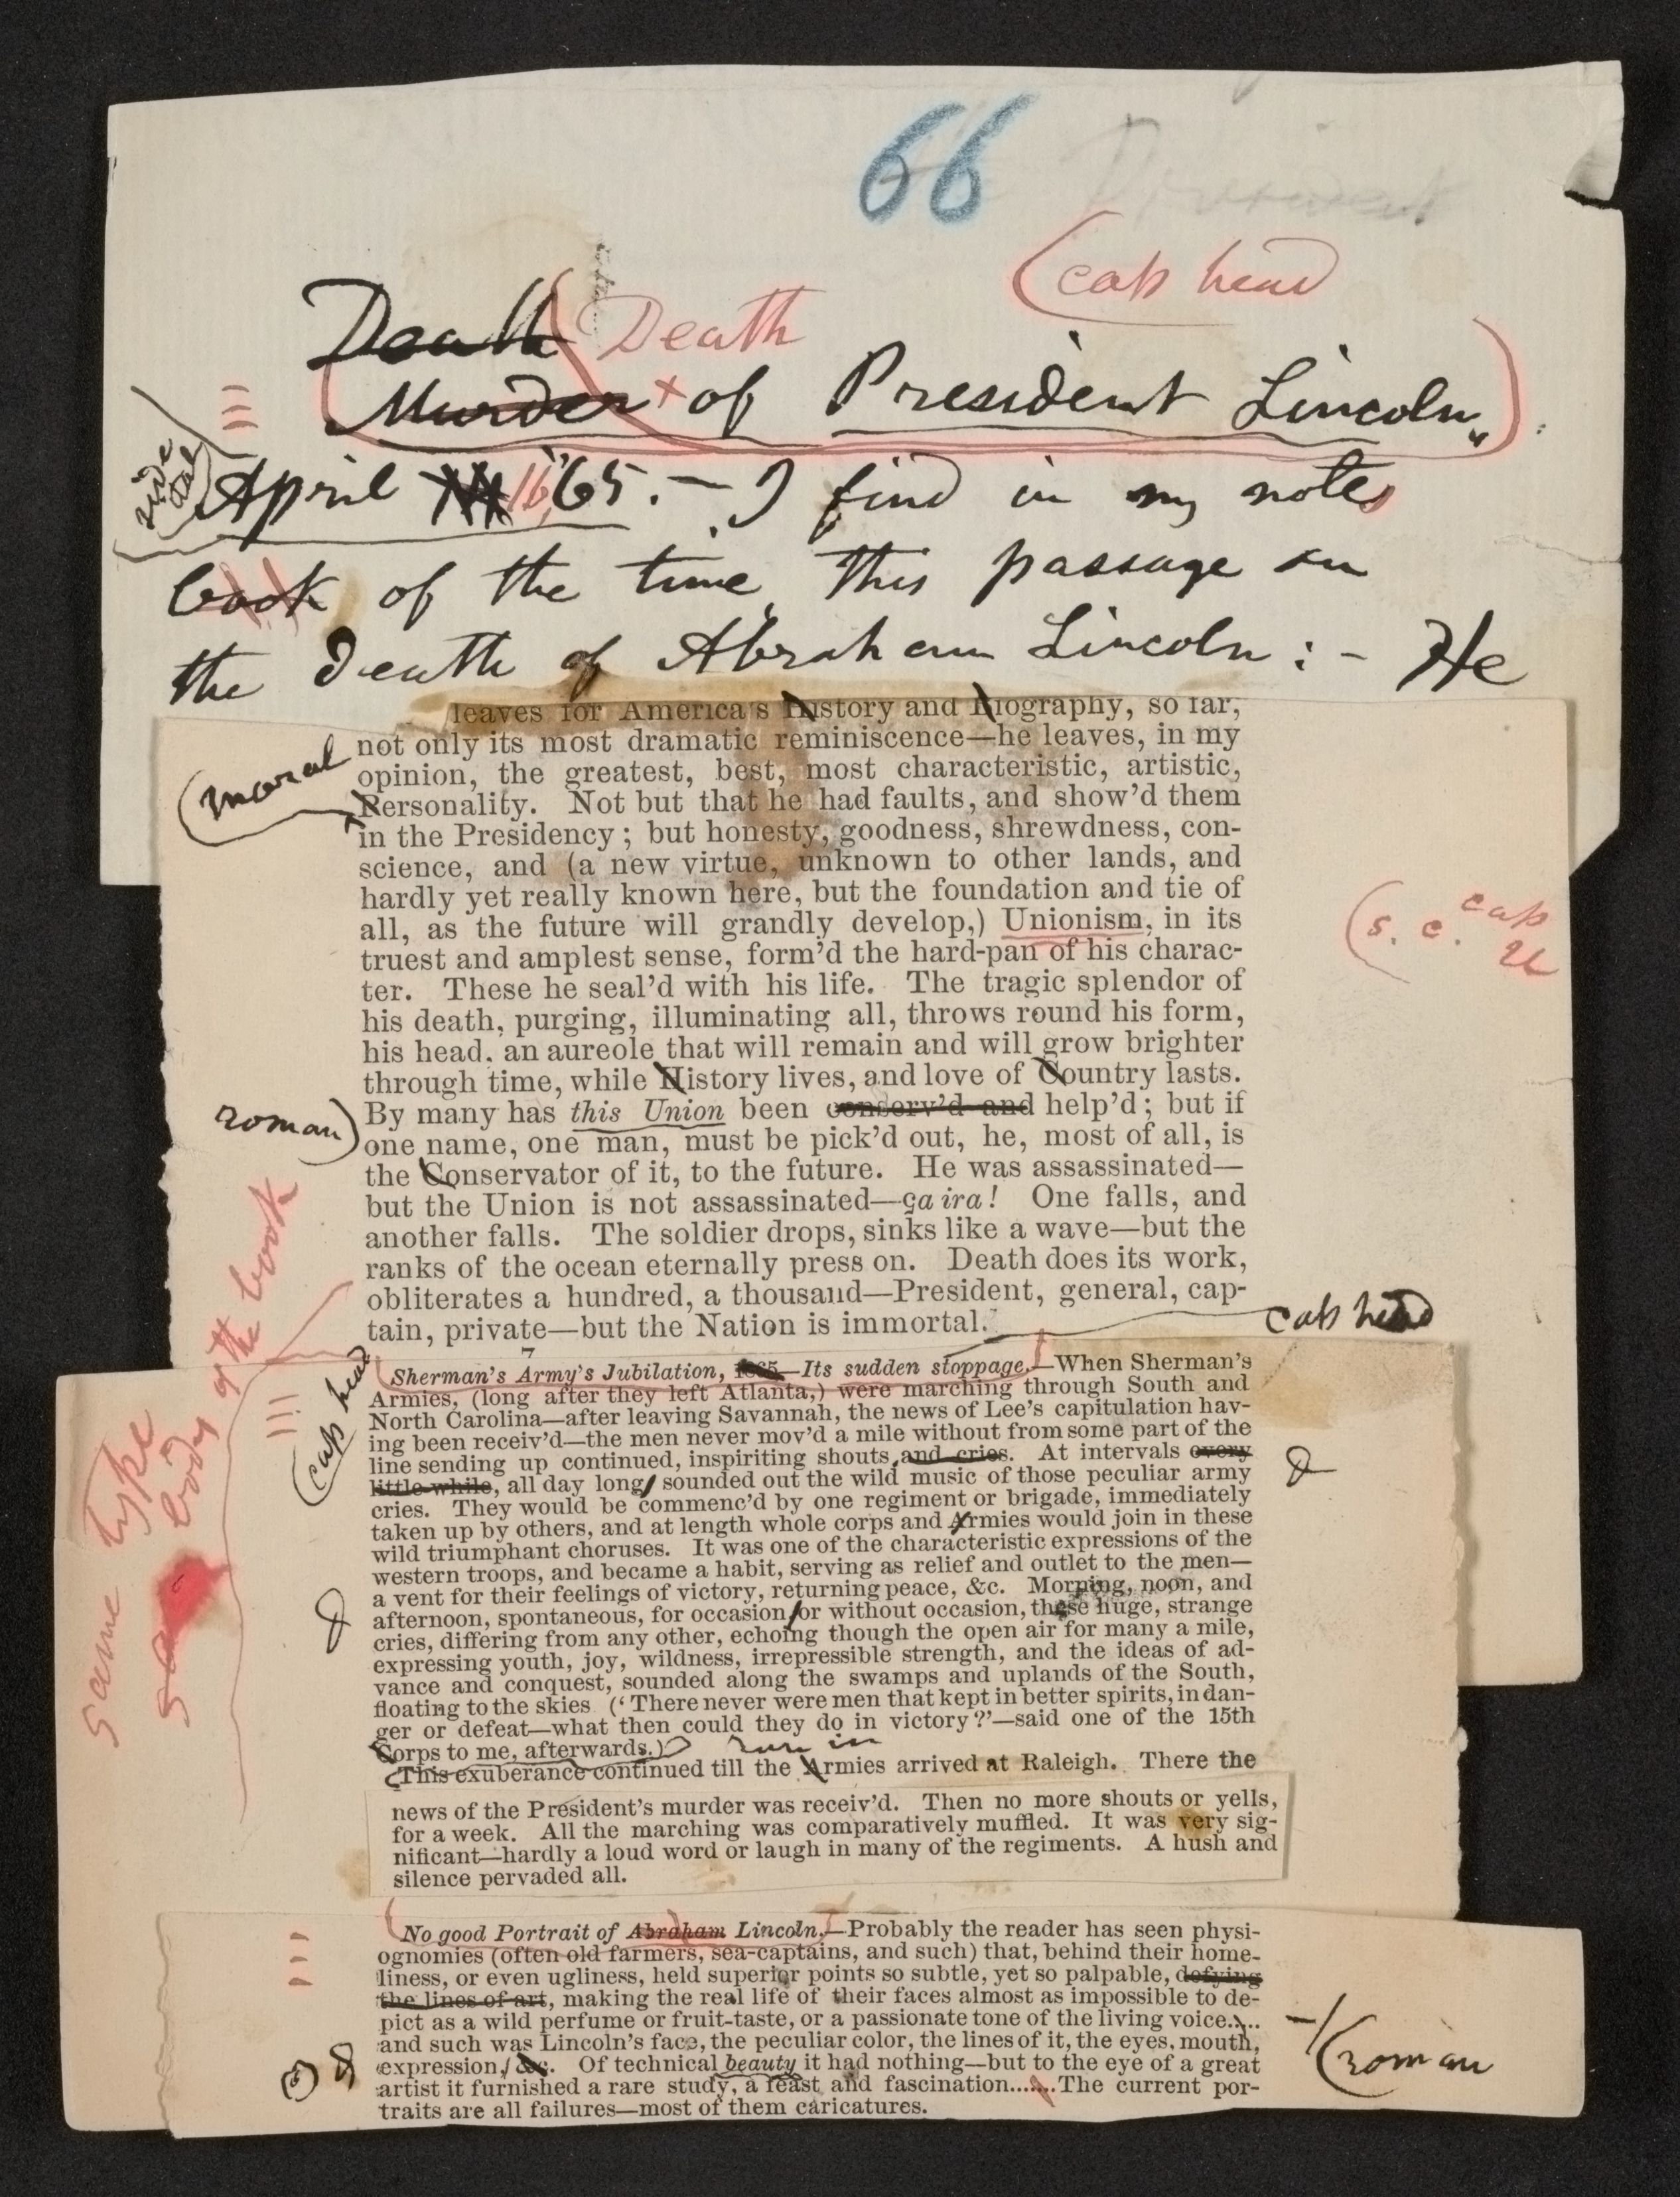 66
(cap head
Death Death
Murder × of President Lincoln,
side ital
April 16, '65.—I find in my notes
book of the time, this passage on
the death of Abraham Lincoln:— He
leaves for America's History and Biography, so far,
not only its most dramatic reminiscence—he leaves, in my
(moral
opinion, the greatest, best, most characteristic, artistic,
Personality. Not but that he had faults, and show'd them
in the Presidency; but honesty, goodness, shrewdness, con-
science, and (a new virtue, unknown to other lands, and
hardly yet really known here, but the foundation and tie of
all, as the future will grandly develop,) Unionism, in its
(s. c. cap U
truest and amplest sense, form'd the hard-pan of his charac-
ter. These he seal'd with his life. The tragic splendor of
his death, purging, illuminating all, throws round his form,
his head, an aureole that will remain and will grow brighter
through time, while History lives, and love of Country lasts.
roman)
By many has this Union been conserv'd and help'd; but if
one name, one man, must be pick'd out, he, most of all, is
the Conservator of it, to the future. He was assassinated—
but the Union is not assassinated—ça ira! One falls, and
another falls. The soldier drops, sinks like a wave—but the
ranks of the ocean eternally press on. Death does its work,
obliterates a hundred, a thousand—President, general, cap-
tain, private—but the Nation is immortal.
cap head
same type
as body of the book
(cap head
Sherman's Army's Jubilation, 1865—Its sudden stoppage.—When Sherman's
Armies, (long after they left Atlanta,) were marching through South and
North Carolina—after leaving Savannah, the news of Lee's capitulation hav-
ing been receiv'd—the men never mov'd a mile without from some part of the
line sending up continued, inspiriting shouts, and cries. At intervals every
little while, all day long sounded out the wild music of those peculiar army
cries. They would be commenc'd by one regiment or brigade, immediately
taken up by others, and at length whole corps and Armies would join in these
wild triumphant choruses. It was one of the characteristic expressions of the
western troops, and became a habit, serving as relief and outlet to the men—
a vent for their feelings of victory, returning peace, &c. Morning, noon, and
afternoon, spontaneous, for occasion, or without occasion, these huge, strange
cries, differing from any other, echoing though the open air for many a mile,
expressing youth, joy, wildness, irrepressible strength, and the ideas of ad-
vance and conquest, sounded along the swamps and uplands of the South,
floating to the skies (‘There never were men that kept in better spirits, in dan-
ger or defeat—what then could they do in victory?’—said one of the 15th
Corps to me, afterwards.) run in
This exuberance continued till the Armies arrived at Raleigh. There the
news of the President's murder was receiv'd. Then no more shouts or yells,
for a week. All the marching was comparatively muffled. It was very sig-
nificant—hardly a loud word or laugh in many of the regiments. A hush and
silence pervaded all.
No good Portrait of Abraham Lincoln.—Probably the reader has seen physi-
ognomies (often old farmers, sea-captains, and such) that, behind their home-
liness, or even ugliness, held superior points so subtle, yet so palpable, defying
the lines of art, making the real life of their faces almost as impossible to de-
pict as a wild perfume or fruit-taste, or a passionate tone of the living voice.....
and such was Lincoln's face, the peculiar color, the lines of it, the eyes, mouth,
expression, &c. Of technical beauty it had nothing—but to the eye of a great
—/(roman
artist it furnished a rare study, a feast and fascination.......The current por-
traits are all failures—most of them caricatures.